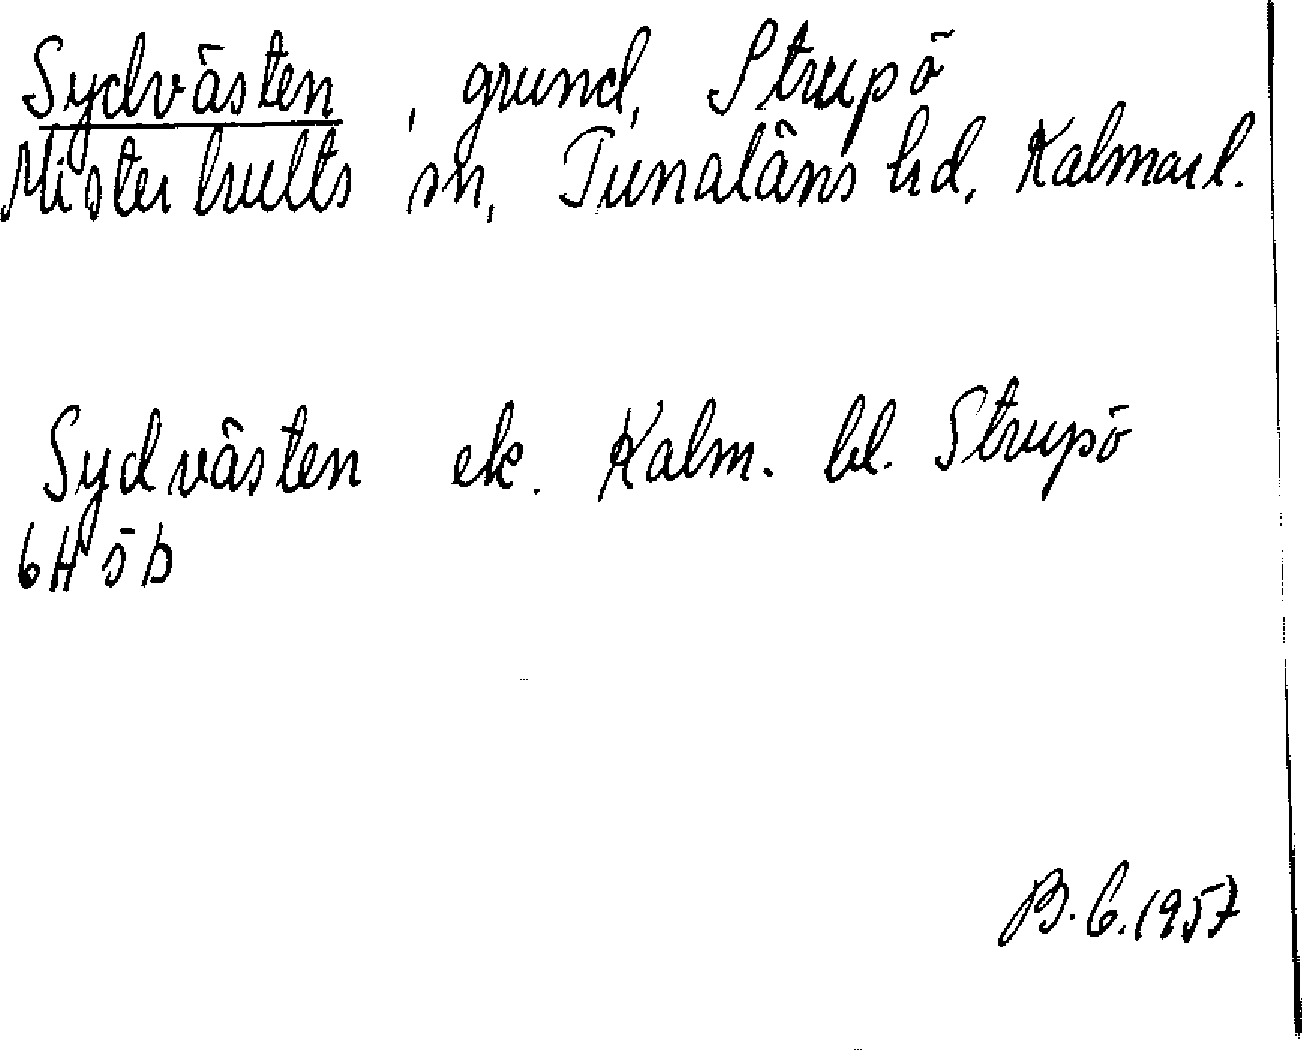 Sydvästen, grund, Strupö
Misterhults sn, Tunaläns hd, Kalmar l.
Sydvästen ek. Kalm. bl. Strupö
6H 5b
B.G. 1957